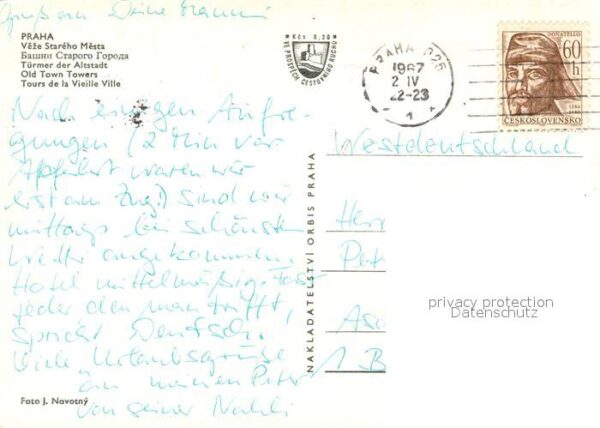 Gruß an Deine Mammi
PRAHA
Věže Starého Města
Башни Старого Города
Türmer der Altstadt
Old Town Towers
Tours de la Vieille Ville
Kčs 0,20
VE PROSPĚCH CESTOVNÍHO RUCHU
PRAHA 025
1967
2 IV
22-23
1
DONATELLO
60 h
1386
ČESKOSLOVENSKO
Nach einigen Aufre-
gungen (2 Min vor
Abfahrt waren wir
erst am Zug!) sind wir
mittags bei schönstem
Wetter angekommen.
Hotel mittelmäßig. Fast
jeder den man trifft,
spricht Deutsch.
Viele Urlaubsgrüße
an meinen Peter
von seiner
Foto J. Novotný
NAKLADATELSTVÍ ORBIS PRAHA
Westdeutschland
Herr
Pet
Asc
1 B
privacy protection
Datenschutz